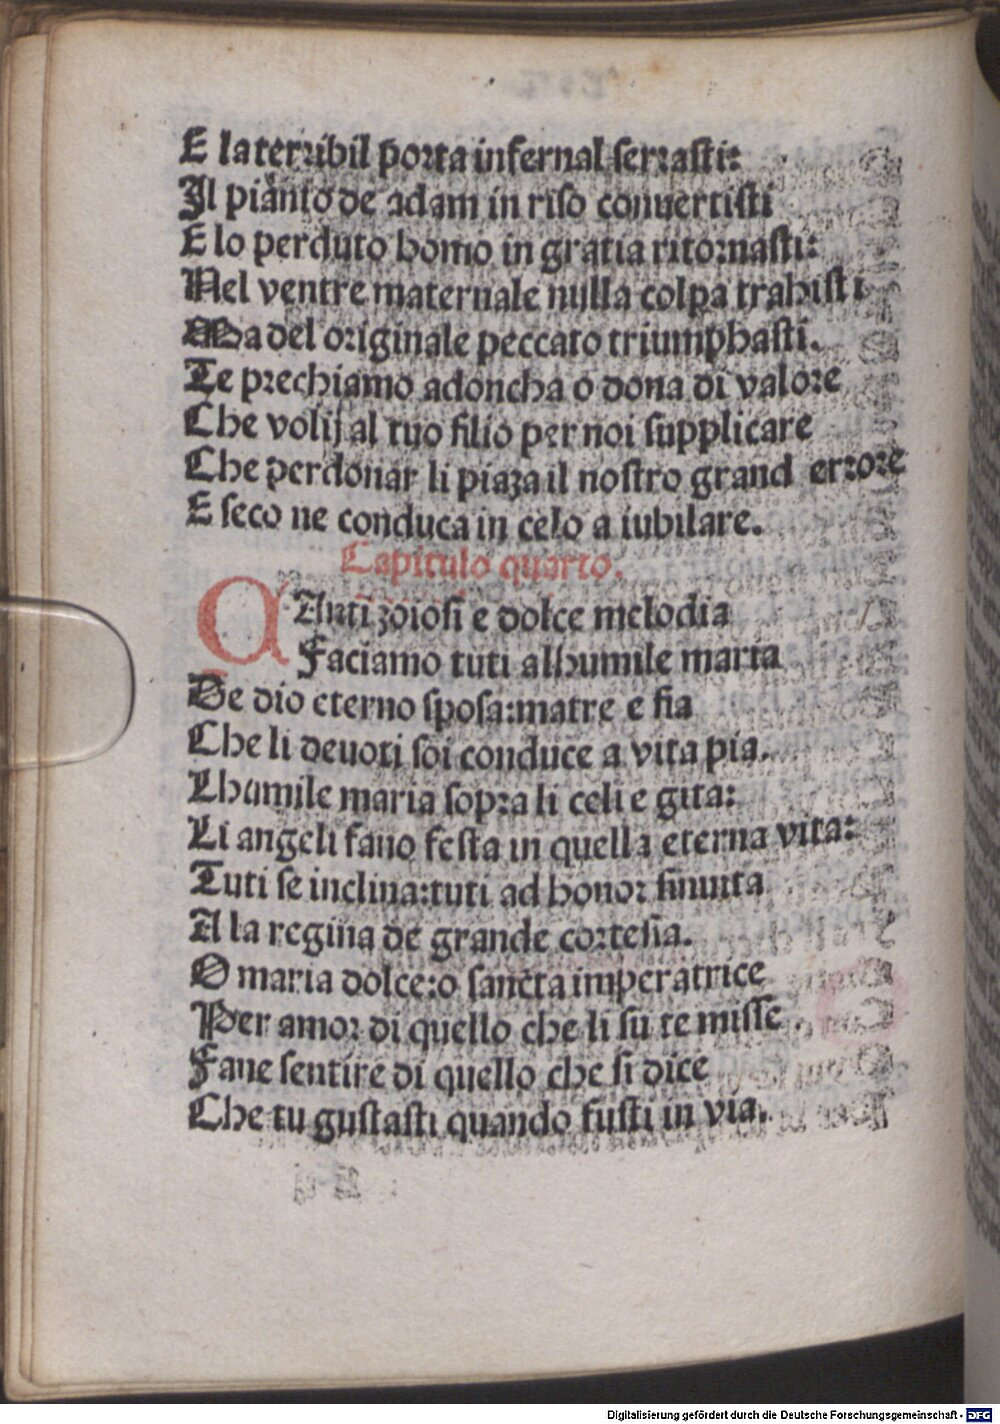 E la terribil porta infernal serrasti:
Il pianto de adam in riso conuertisti
E lo perduto homo in gratia ritornasti:
Nel ventre maternale nulla colpa trahisti
Ma del originale peccato triumphasti.
Te prechiamo adoncha o dona di valore
Che volij al tuo filio per noi supplicare
Che perdonar li piaza il nostro grand errore
E seco ne conduca in celo a iubilare.
Capitulo quarto.
CAnti zoiosi e dolce melodia
Faciamo tuti alhumile maria
De dio eterno sposa:matre e fia
Che li deuoti soi conduce a vita pia.
Lhumile maria sopra li celi e gita:
Li angeli fano festa in quella eterna vita:
Tuti se inclina:tuti ad honor sinuita
A la regina de grande cortesia.
O maria dolce:o sancta imperatrice
Per amor di quello che li su te misse
Fane sentire di quello che si dice
Che tu gustasti quando fusti in via.
Digitalisierung gefördert durch die Deutsche Forschungsgemeinschaft - DFG